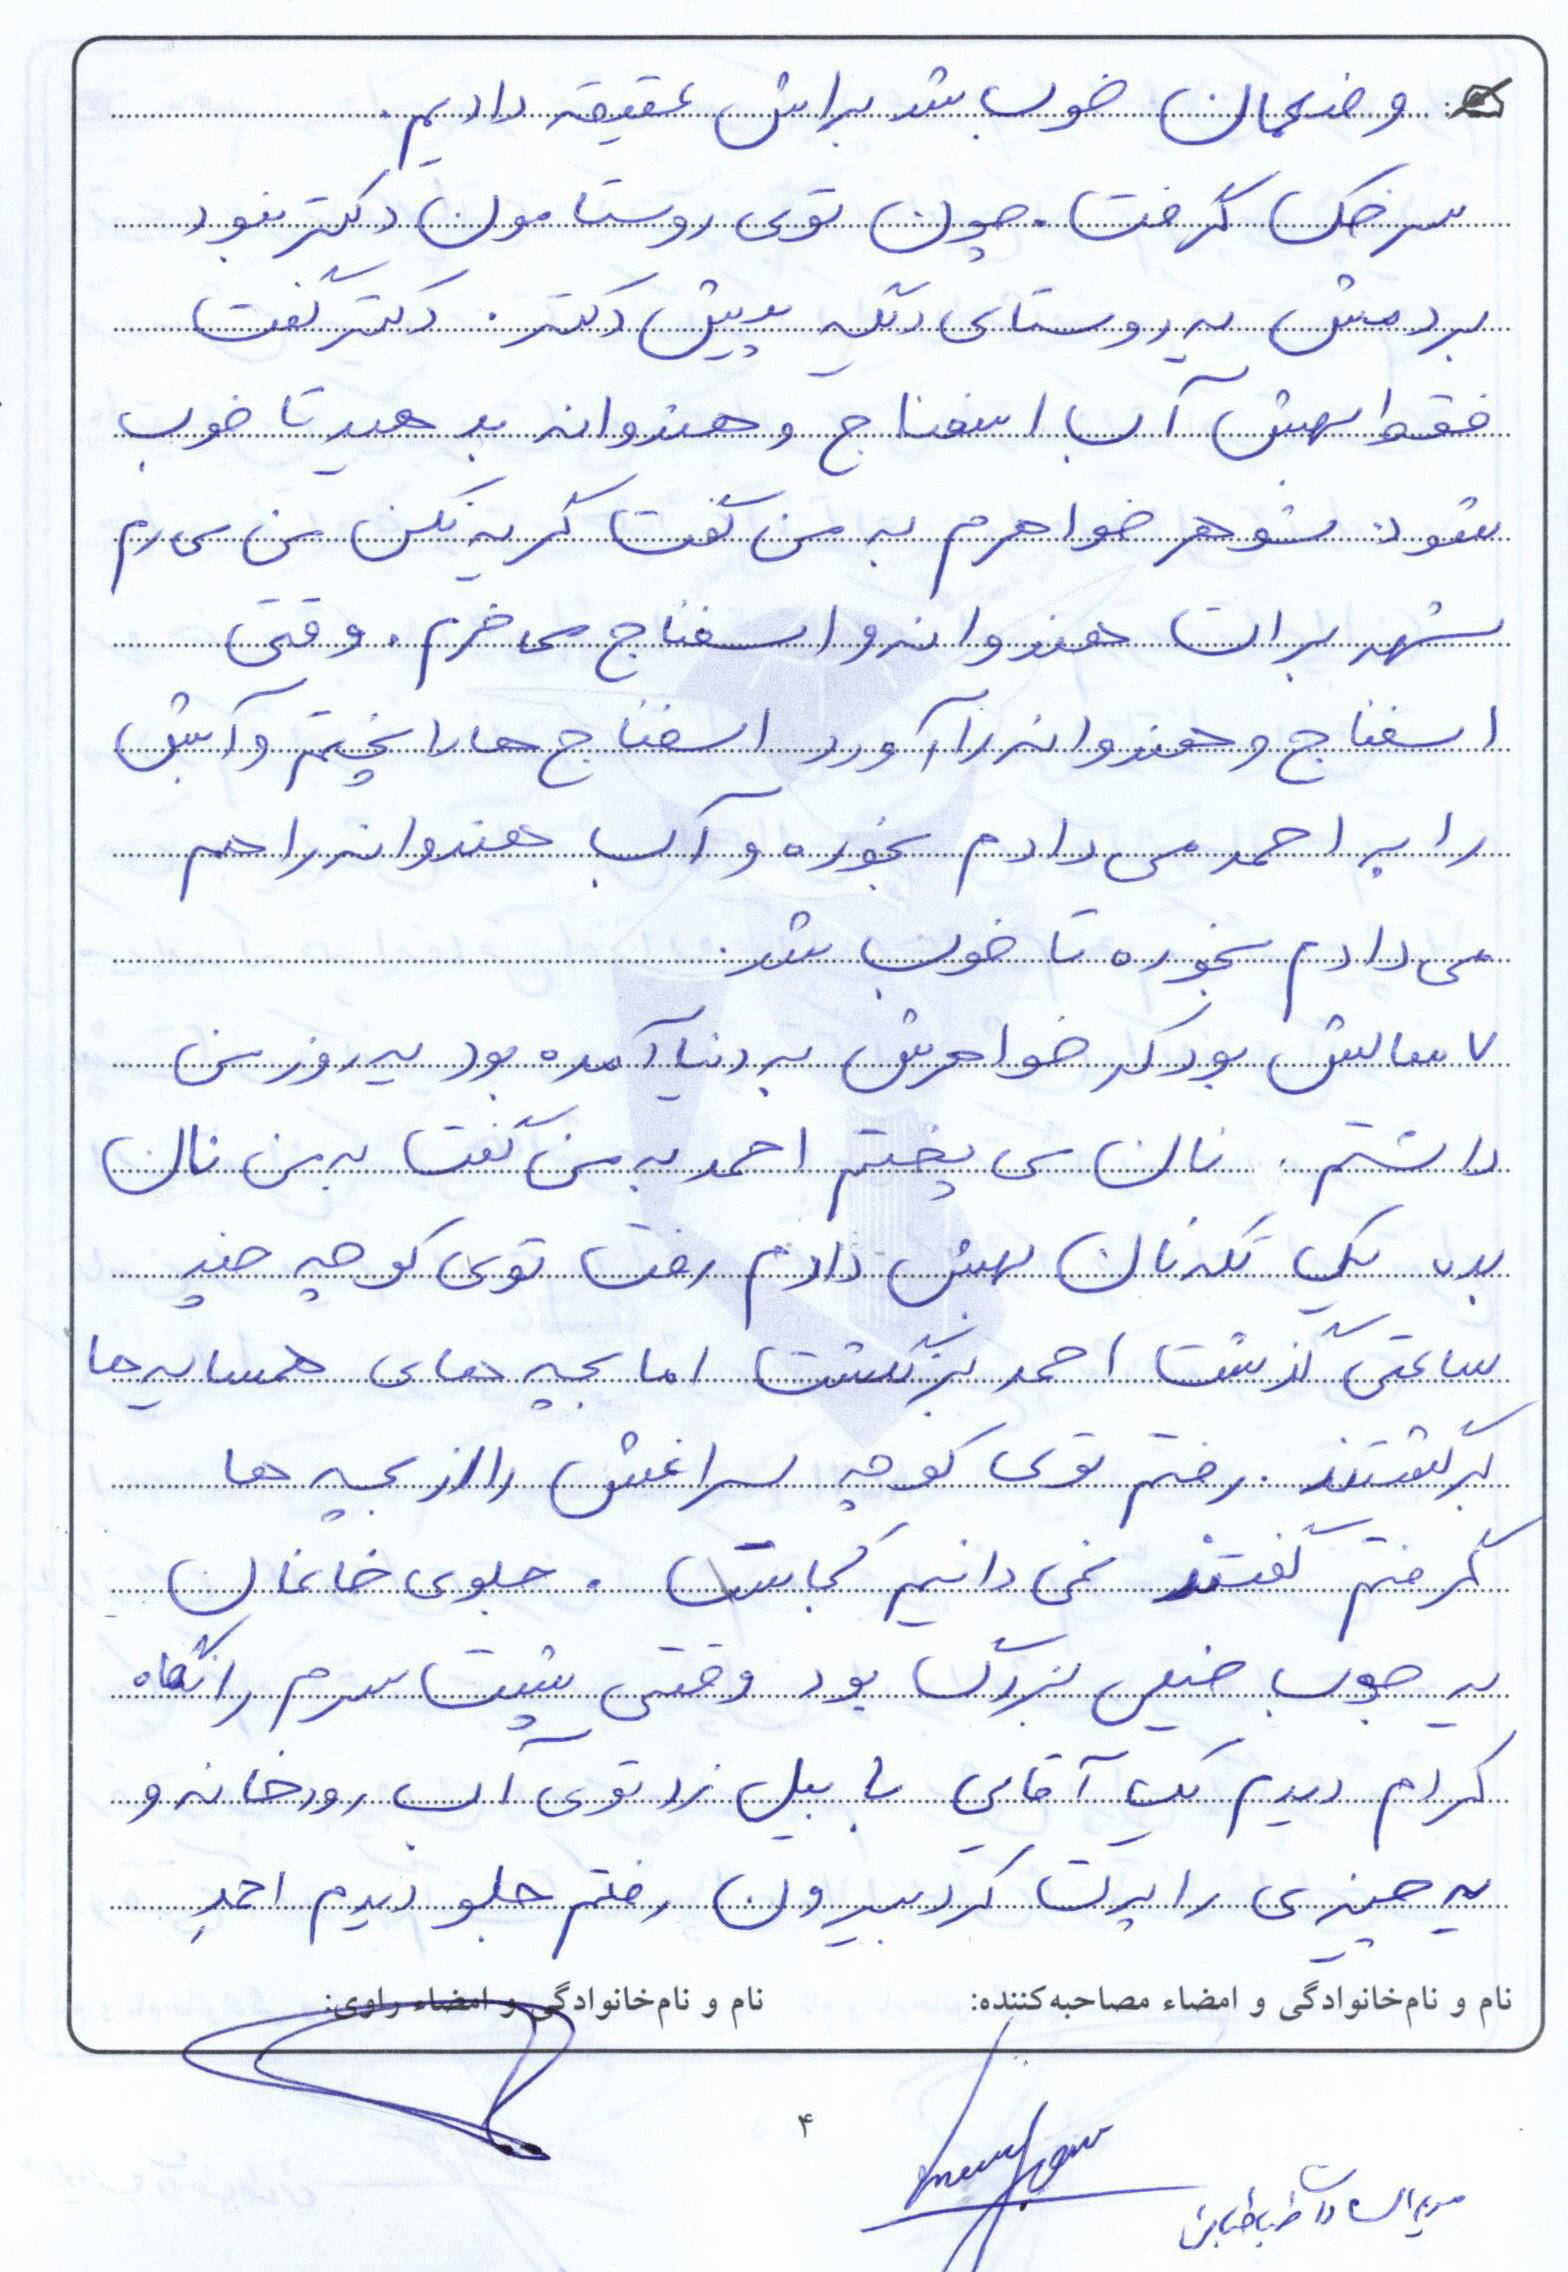 وضعمان خوب شد براش عقیقه دادیم.
سرخک گرفت. چون توی روستامون دکتر نبود
بردمش یه روستای دیگه پیش دکتر. دکتر گفت
فقط بهش آب اسفناج و هندوانه بدهید تا خوب
شود. شوهر خواهرم به من گفت گریه نکن من می رم
شهر برات هندوانه و اسفناج می خرم. وقتی
اسفناج و هندوانه را آورد اسفناج ها را پختم و آبش
را به احمد می دادم بخوره و آب هندوانه را هم
می دادم بخوره تا خوب شد.
۷ سالش بود که خواهرش به دنیا آمده بود یه روز من
داشتم نان می پختم احمد به من گفت به من نان
بده یک تکه نان بهش دادم رفت توی کوچه چند
ساعتی گذشت احمد برنگشت اما بچه های همسایه ها
برگشتند. رفتم توی کوچه سراغش را از بچه ها
گرفتم گفتند نمی دانیم کجاست. جلوی خانمان
یه جوب خیلی بزرگ بود وقتی پشت سرم را نگاه
کردم دیدم یک آقایی با بیل زد توی آب رودخانه و
یه چیزی را پرت کرد بیرون رفتم جلو دیدم احمدِ
نام و نام‌خانوادگی و امضاء مصاحبه‌کننده:
نام و نام‌خانوادگی و امضاء راوی:
۴
مریم السادات طباطبایی